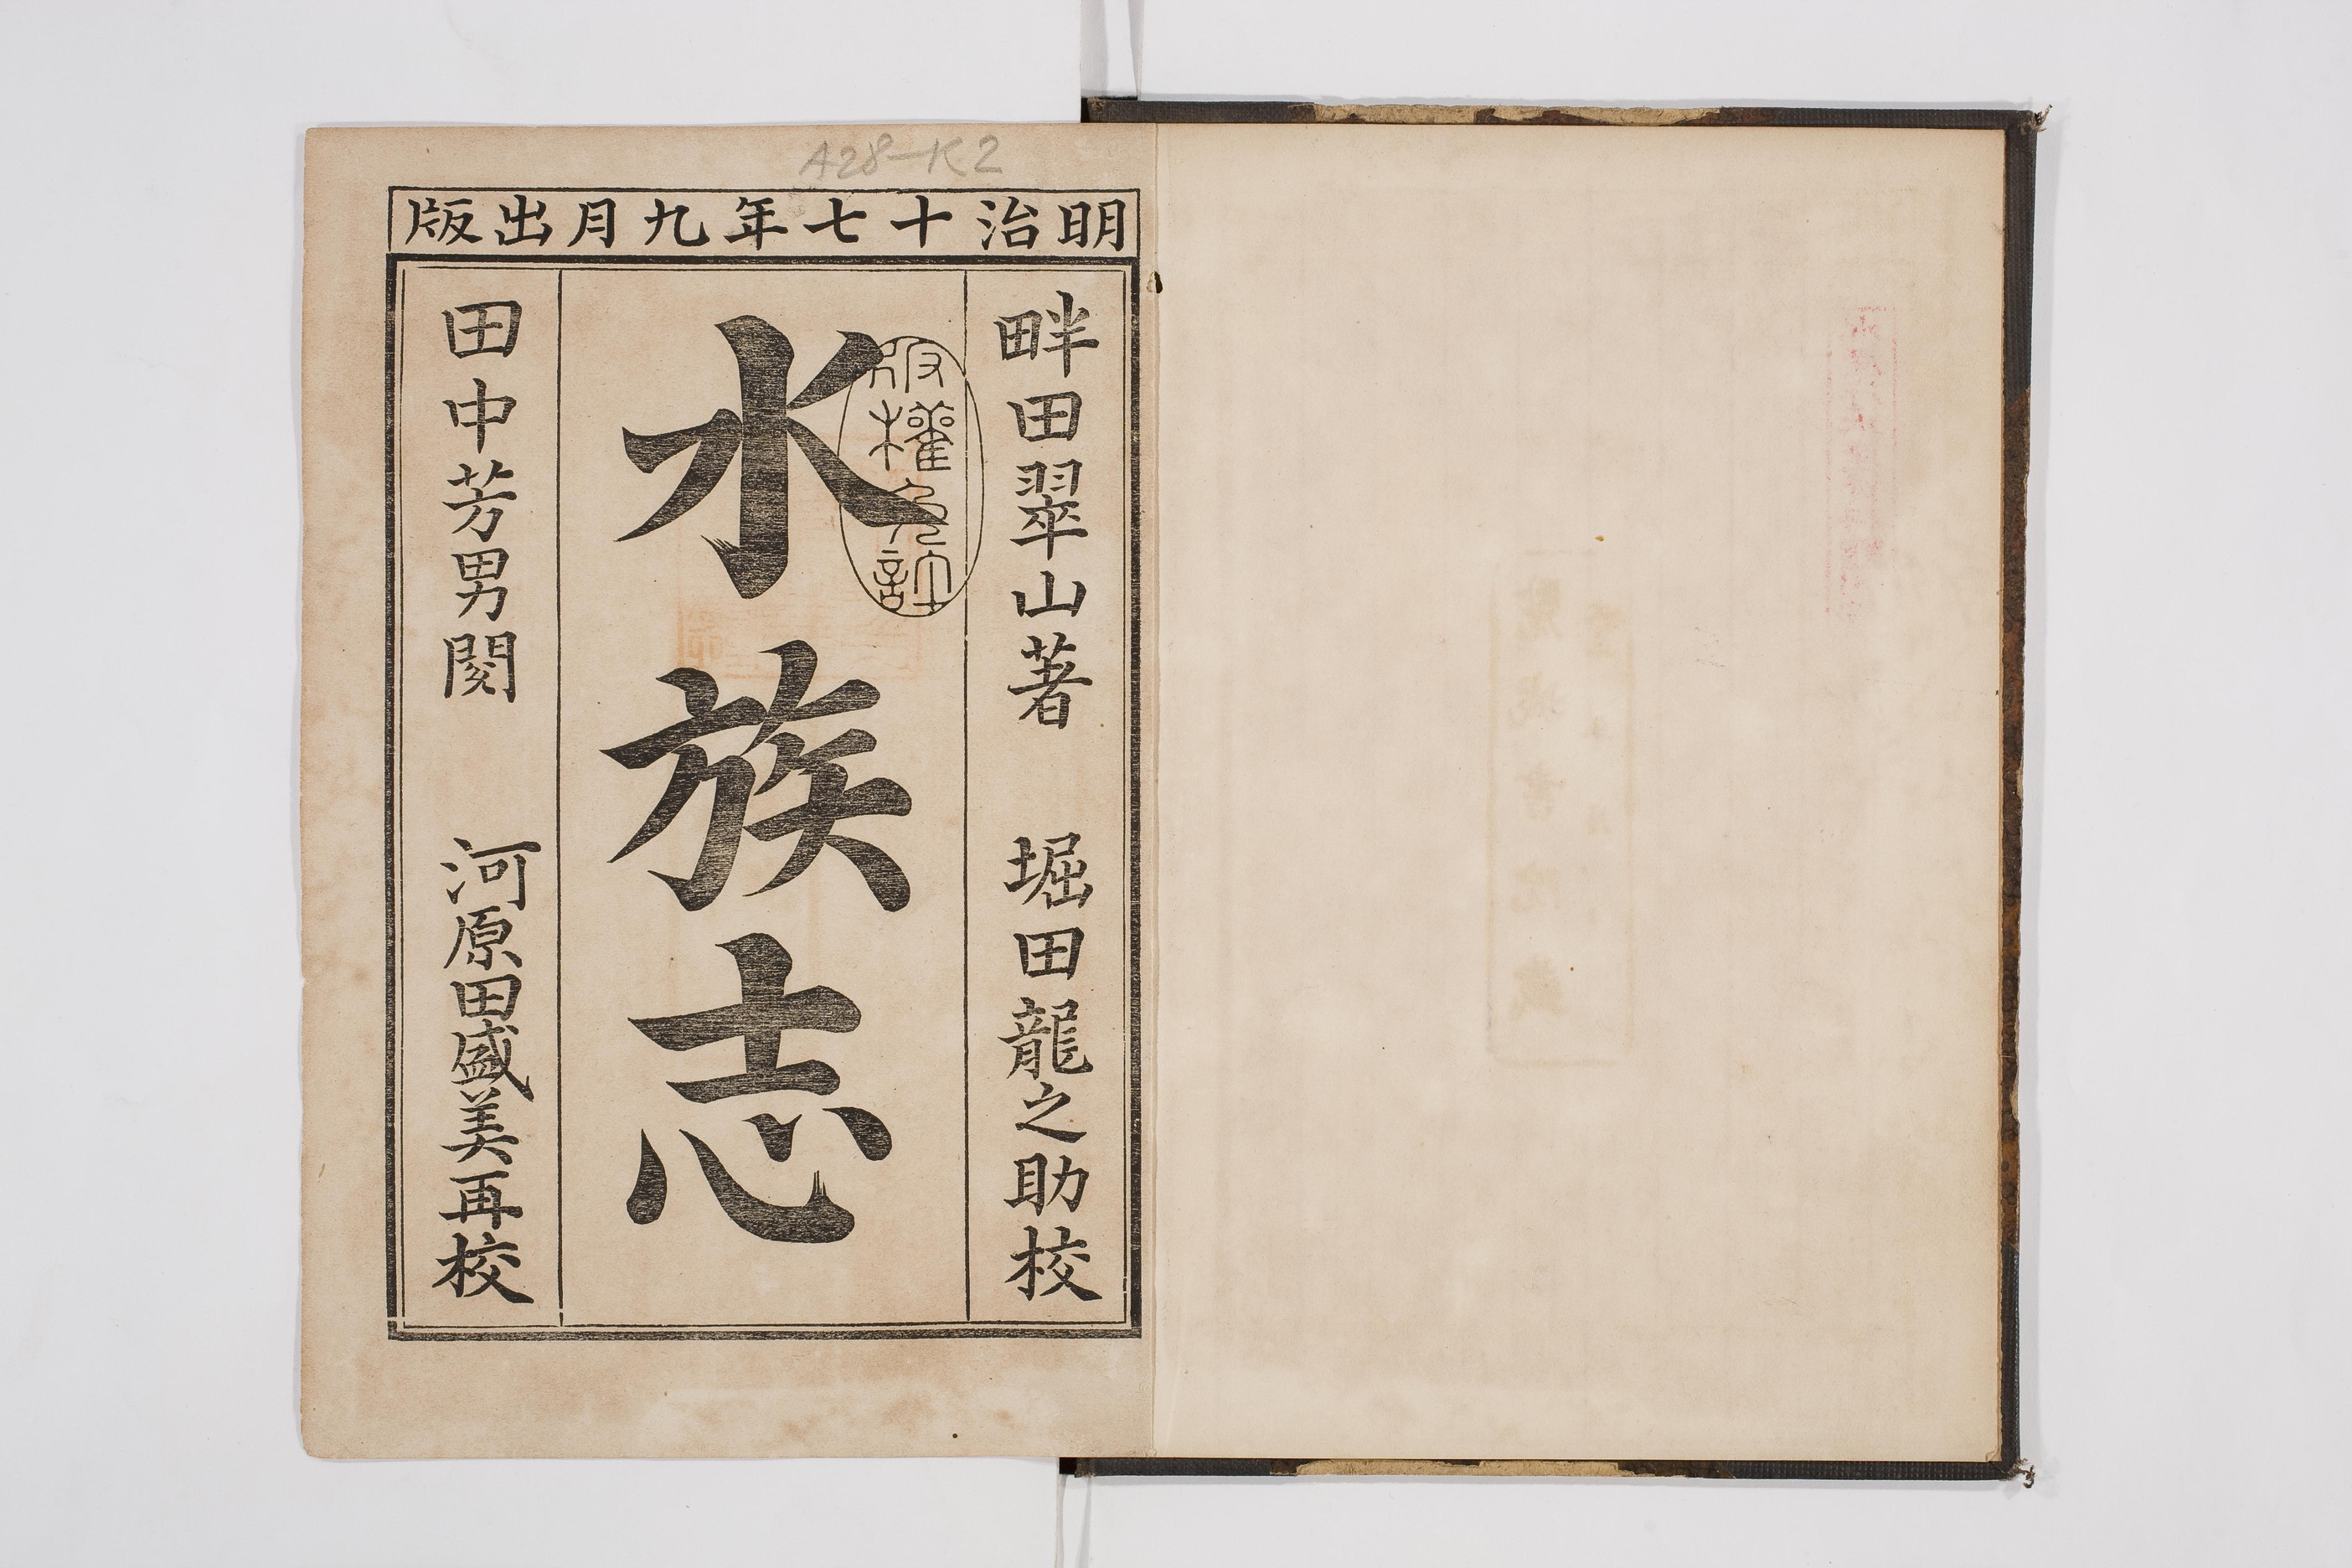 A28-K2
明治十七年九月出版
畔田翠山著 堀田龍之助校
水族志
版權免許
田中芳男閱 河原田盛美再校